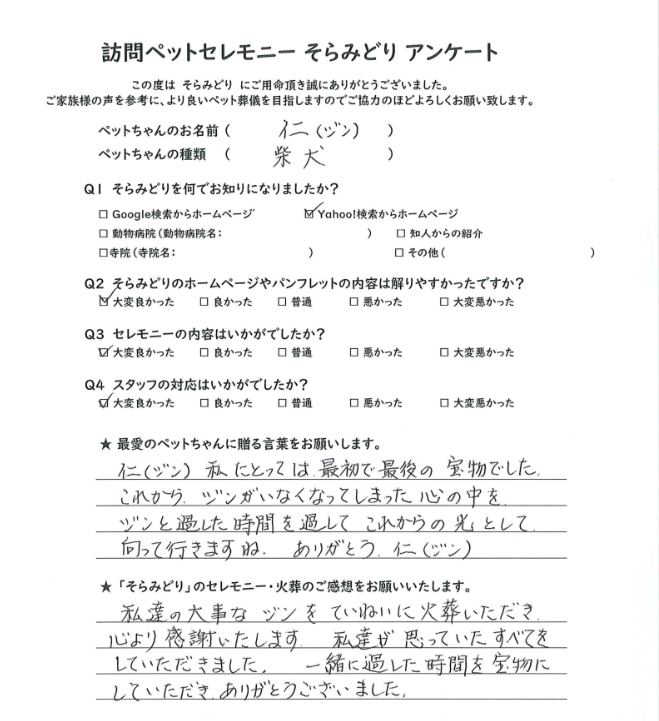 訪問ペットセレモニー そらみどり アンケート
この度は そらみどり にご用命頂き誠にありがとうございました。
ご家族様の声を参考に、より良いペット葬儀を目指しますのでご協力のほどよろしくお願い致します。
ペットちゃんのお名前 ( 仁(ヅン) )
ペットちゃんの種類 ( 柴犬 )
Q1 そらみどりを何でお知りになりましたか?
□ Google検索からホームページ ☑ Yahoo!検索からホームページ
□ 動物病院(動物病院名: ) □ 知人からの紹介
□寺院(寺院名: ) □ その他( )
Q2 そらみどりのホームページやパンフレットの内容は解りやすかったですか?
☑ 大変良かった □ 良かった □ 普通 □ 悪かった □ 大変悪かった
Q3 セレモニーの内容はいかがでしたか?
☑ 大変良かった □ 良かった □ 普通 □ 悪かった □ 大変悪かった
Q4 スタッフの対応はいかがでしたか?
☑ 大変良かった □ 良かった □ 普通 □ 悪かった □ 大変悪かった
★ 最愛のペットちゃんに贈る言葉をお願いします。
仁(ヅン) 私にとっては 最初で最後の 宝物でした。
これから ヅンがいなくなってしまった 心の中を
ヅンと過した時間を過して これからの光として
向って行きますね. ありがとう. 仁(ヅン)
★ 「そらみどり」のセレモニー・火葬のご感想をお願いいたします。
私達の大事な ヅンを ていねいに火葬いただき
心より感謝いたします 私達が思っていたすべてを
していただきました。 一緒に過した時間を宝物に
していただき ありがとうございました。